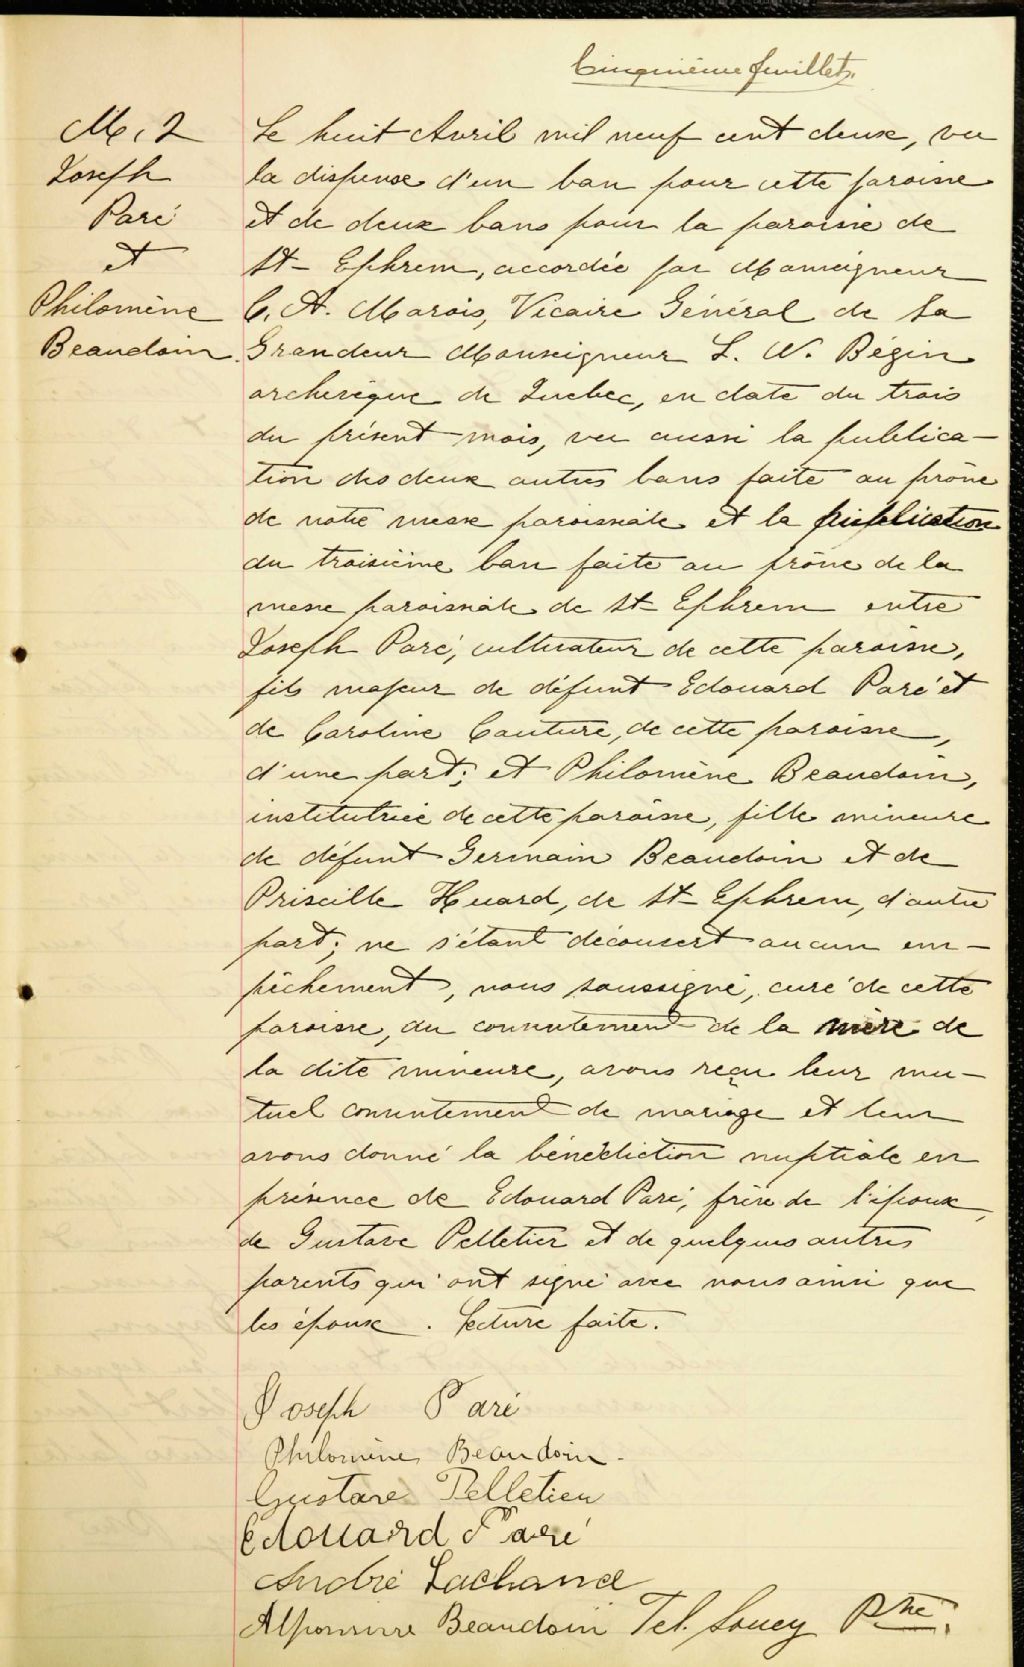 Cinquième feuillet.
M. 2
Joseph
Paré
et
Philomène
Beaudoin.
Le huit Avril mil neuf cent deux, vu
la dispense d'un ban pour cette paroisse
et de deux bans pour la paroisse de
St-Ephrem, accordée par Monseigneur
C. A. Marois, Vicaire Général de Sa
Grandeur Monseigneur L. N. Bégin
archevêque de Quebec, en date du trois
du présent mois, vu aussi la publica-
tion des deux autres bans faite au prône
de notre messe paroissiale et la publication
du troisième ban faite au prône de la
messe paroissiale de St-Ephrem entre
Joseph Paré, cultivateur de cette paroisse,
fils majeur de défunt Edouard Paré et
de Caroline Couture, de cette paroisse,
d'une part; et Philomène Beaudoin,
institutrice de cette paroisse, fille mineure
de défunt Germain Beaudoin et de
Priscille Huard, de St-Ephrem, d'autre
part; ne s'étant découvert aucun em-
pêchement, nous soussigné, curé de cette
paroisse, du consentement de la mère de
la dite mineure, avons reçu leur mu-
tuel consentement de mariage et leur
avons donné la bénédiction nuptiale en
présence de Edouard Paré, frère de l'époux,
de Gustave Pelletier et de quelques autres
parents qui ont signé avec nous ainsi que
les époux. Lecture faite.
Joseph Paré
Philomène Beaudoin.
Gustave Pelletier
Edouard Paré
André Lachance
Beaudoin Tel. Soucy Ptre.